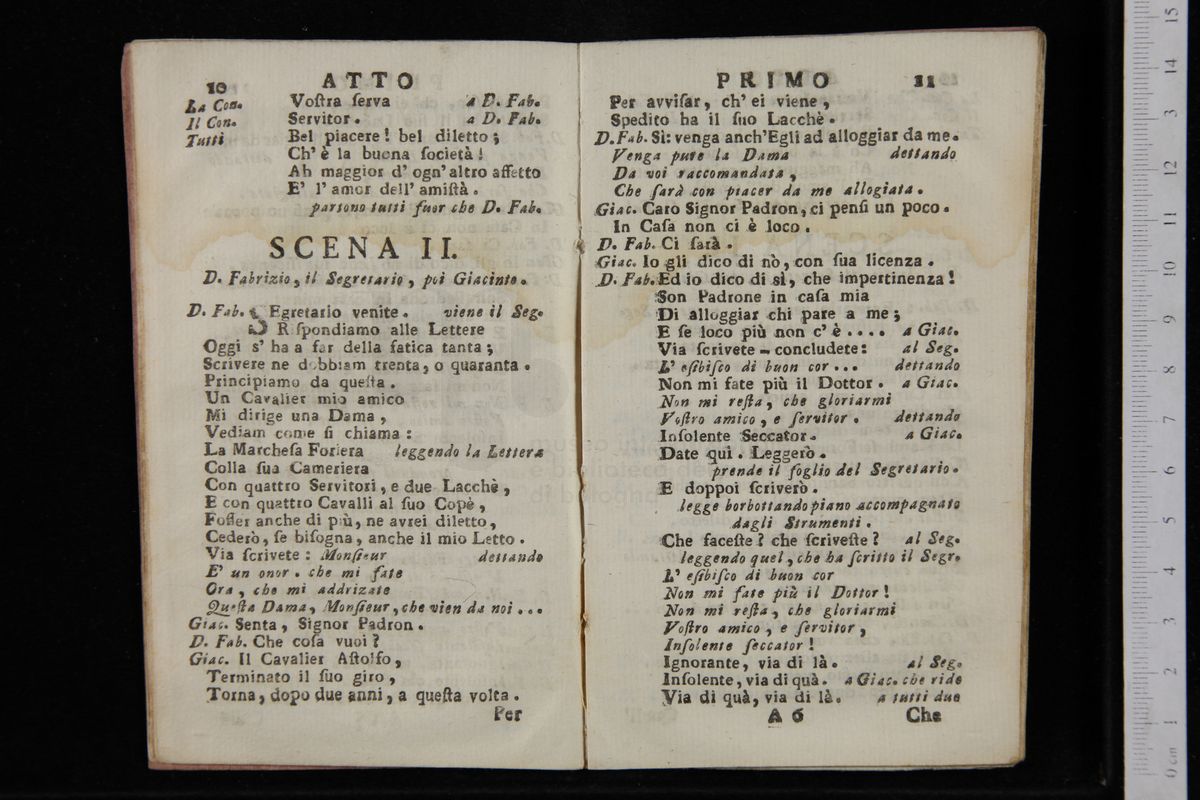 10 ATTO
La Con. Voſtra ſerva a D. Fab.
Il Con. Servitor. a D. Fab.
Tutti Bel piacere! bel diletto;
Ch' è la buona ſocietà!
Ah maggior d' ogn' altro affetto
E' l' amor dell' amiſtà.
partono tutti fuor che D. Fab.
SCENA II.
D. Fabrizio, il Segretario, poi Giacinto.
D. Fab. SEgretario venite. viene il Seg.
Riſpondiamo alle Lettere
Oggi s' ha a far della fatica tanta;
Scrivere ne dobbiam trenta, o quaranta.
Principiamo da queſta.
Un Cavalier mio amico
Mi dirige una Dama,
Vediam come ſi chiama:
La Marcheſa Foriera leggendo la Lettera
Colla ſua Cameriera
Con quattro Servitori, e due Lacchè,
E con quattro Cavalli al ſuo Copè,
Foſſer anche di più, ne avrei diletto,
Cederò, ſe biſogna, anche il mio Letto.
Via ſcrivete: Monſieur dettando
E' un onor. che mi fate
Ora, che mi addrizate
Queſta Dama, Monſieur, che vien da noi...
Giac. Senta, Signor Padron.
D. Fab. Che coſa vuoi?
Giac. Il Cavalier Aſtolfo,
Terminato il ſuo giro,
Torna, dopo due anni, a queſta volta.
Per
PRIMO 11
Per avviſar, ch' ei viene,
Spedito ha il ſuo Lacchè.
D.Fab. Sì: venga anch'Egli ad alloggiar da me.
Venga pure la Dama dettando
Da voi raccomandata,
Che ſarà con piacer da me allogiata.
Giac. Caro Signor Padron, ci penſi un poco.
In Caſa non ci è loco.
D. Fab. Ci ſarà.
Giac. Io gli dico di nò, con ſua licenza.
D. Fab. Ed io dico di sì, che impertinenza!
Son Padrone in caſa mia
Di alloggiar chi pare a me;
E ſe loco più non c' è .... a Giac.
Via ſcrivete - concludete: al Seg.
L' eſibiſco di buon cor... dettando
Non mi fate più il Dottor. a Giac.
Non mi reſta, che gloriarmi
Voſtro amico, e ſervitor. dettando
Inſolente Seccator. a Giac.
Date qui. Leggerò.
prende il foglio del Segretario.
E doppoi ſcriverò.
legge borbottando piano accompagnato
dagli Strumenti.
Che faceſte? che ſcriveſte? al Seg.
leggendo quel, che ha ſcritto il Segr.
L' eſibiſco di buon cor
Non mi fate più il Dottor!
Non mi reſta, che gloriarmi
Voſtro amico, e ſervitor,
Inſolente ſeccator!
Ignorante, via di là. al Seg.
Inſolente, via di quà. a Giac. che ride
Via di quà, via di là. a tutti due
A 6 Che